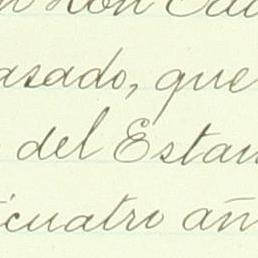 n Don Ed
asado, que
del Estan
icuatro añ